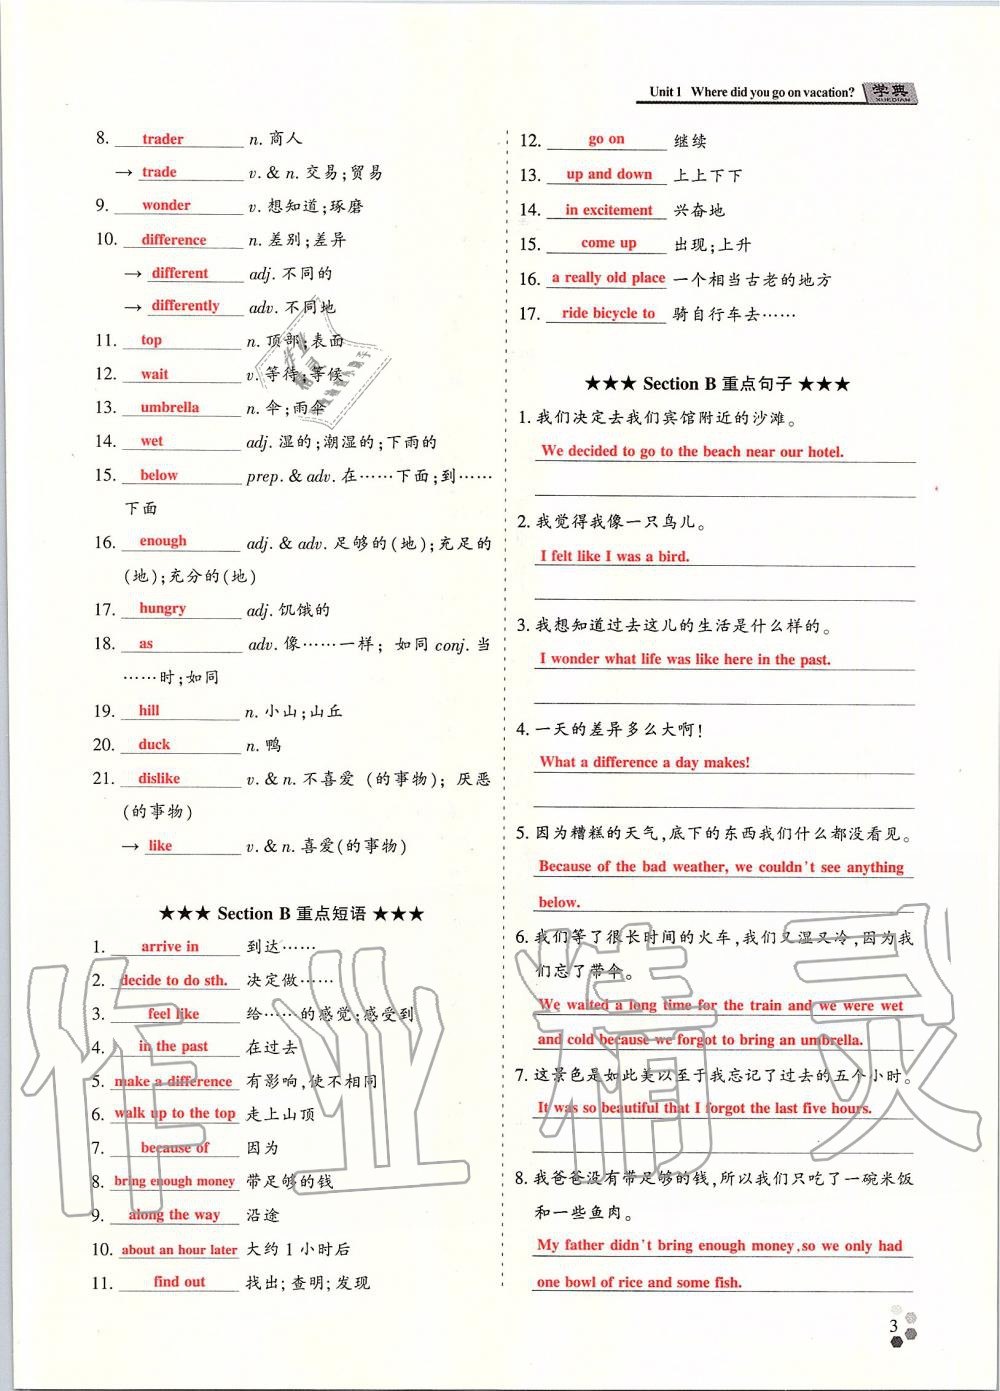 Unit 1 Where did you go on vacation? 学典
XUEDIAN
8. trader n. 商人
→ trade v. & n. 交易;贸易
9. wonder v. 想知道;琢磨
10. difference n. 差别;差异
→ different adj. 不同的
→ differently adv. 不同地
11. top n. 顶部;表面
12. wait v. 等待;等候
13. umbrella n. 伞;雨伞
14. wet adj. 湿的;潮湿的;下雨的
15. below prep. & adv. 在……下面;到……
下面
16. enough adj. & adv. 足够的(地);充足的
(地);充分的(地)
17. hungry adj. 饥饿的
18. as adv. 像……一样; 如同 conj. 当
……时;如同
19. hill n. 小山;山丘
20. duck n. 鸭
21. dislike v. & n. 不喜爱 (的事物); 厌恶
(的事物)
→ like v. & n. 喜爱(的事物)
★★★ Section B 重点短语 ★★★
1. arrive in 到达……
2. decide to do sth. 决定做……
3. feel like 给……的感觉;感受到
4. in the past 在过去
5. make a difference 有影响,使不相同
6. walk up to the top 走上山顶
7. because of 因为
8. bring enough money 带足够的钱
9. along the way 沿途
10. about an hour later 大约 1 小时后
11. find out 找出; 查明; 发现
12. go on 继续
13. up and down 上上下下
14. in excitement 兴奋地
15. come up 出现;上升
16. a really old place 一个相当古老的地方
17. ride bicycle to 骑自行车去……
★★★ Section B 重点句子 ★★★
1. 我们决定去我们宾馆附近的沙滩。
We decided to go to the beach near our hotel.
2. 我觉得我像一只鸟儿。
I felt like I was a bird.
3. 我想知道过去这儿的生活是什么样的。
I wonder what life was like here in the past.
4. 一天的差异多么大啊!
What a difference a day makes!
5. 因为糟糕的天气,底下的东西我们什么都没看见。
Because of the bad weather, we couldn't see anything
below.
6. 我们等了很长时间的火车,我们又湿又冷,因为我
们忘了带伞。
We waited a long time for the train and we were wet
and cold because we forgot to bring an umbrella.
7. 这景色是如此美以至于我忘记了过去的五个小时。
It was so beautiful that I forgot the last five hours.
8. 我爸爸没有带足够的钱,所以我们只吃了一碗米饭
和一些鱼肉。
My father didn't bring enough money,so we only had
one bowl of rice and some fish.
3
作业精灵